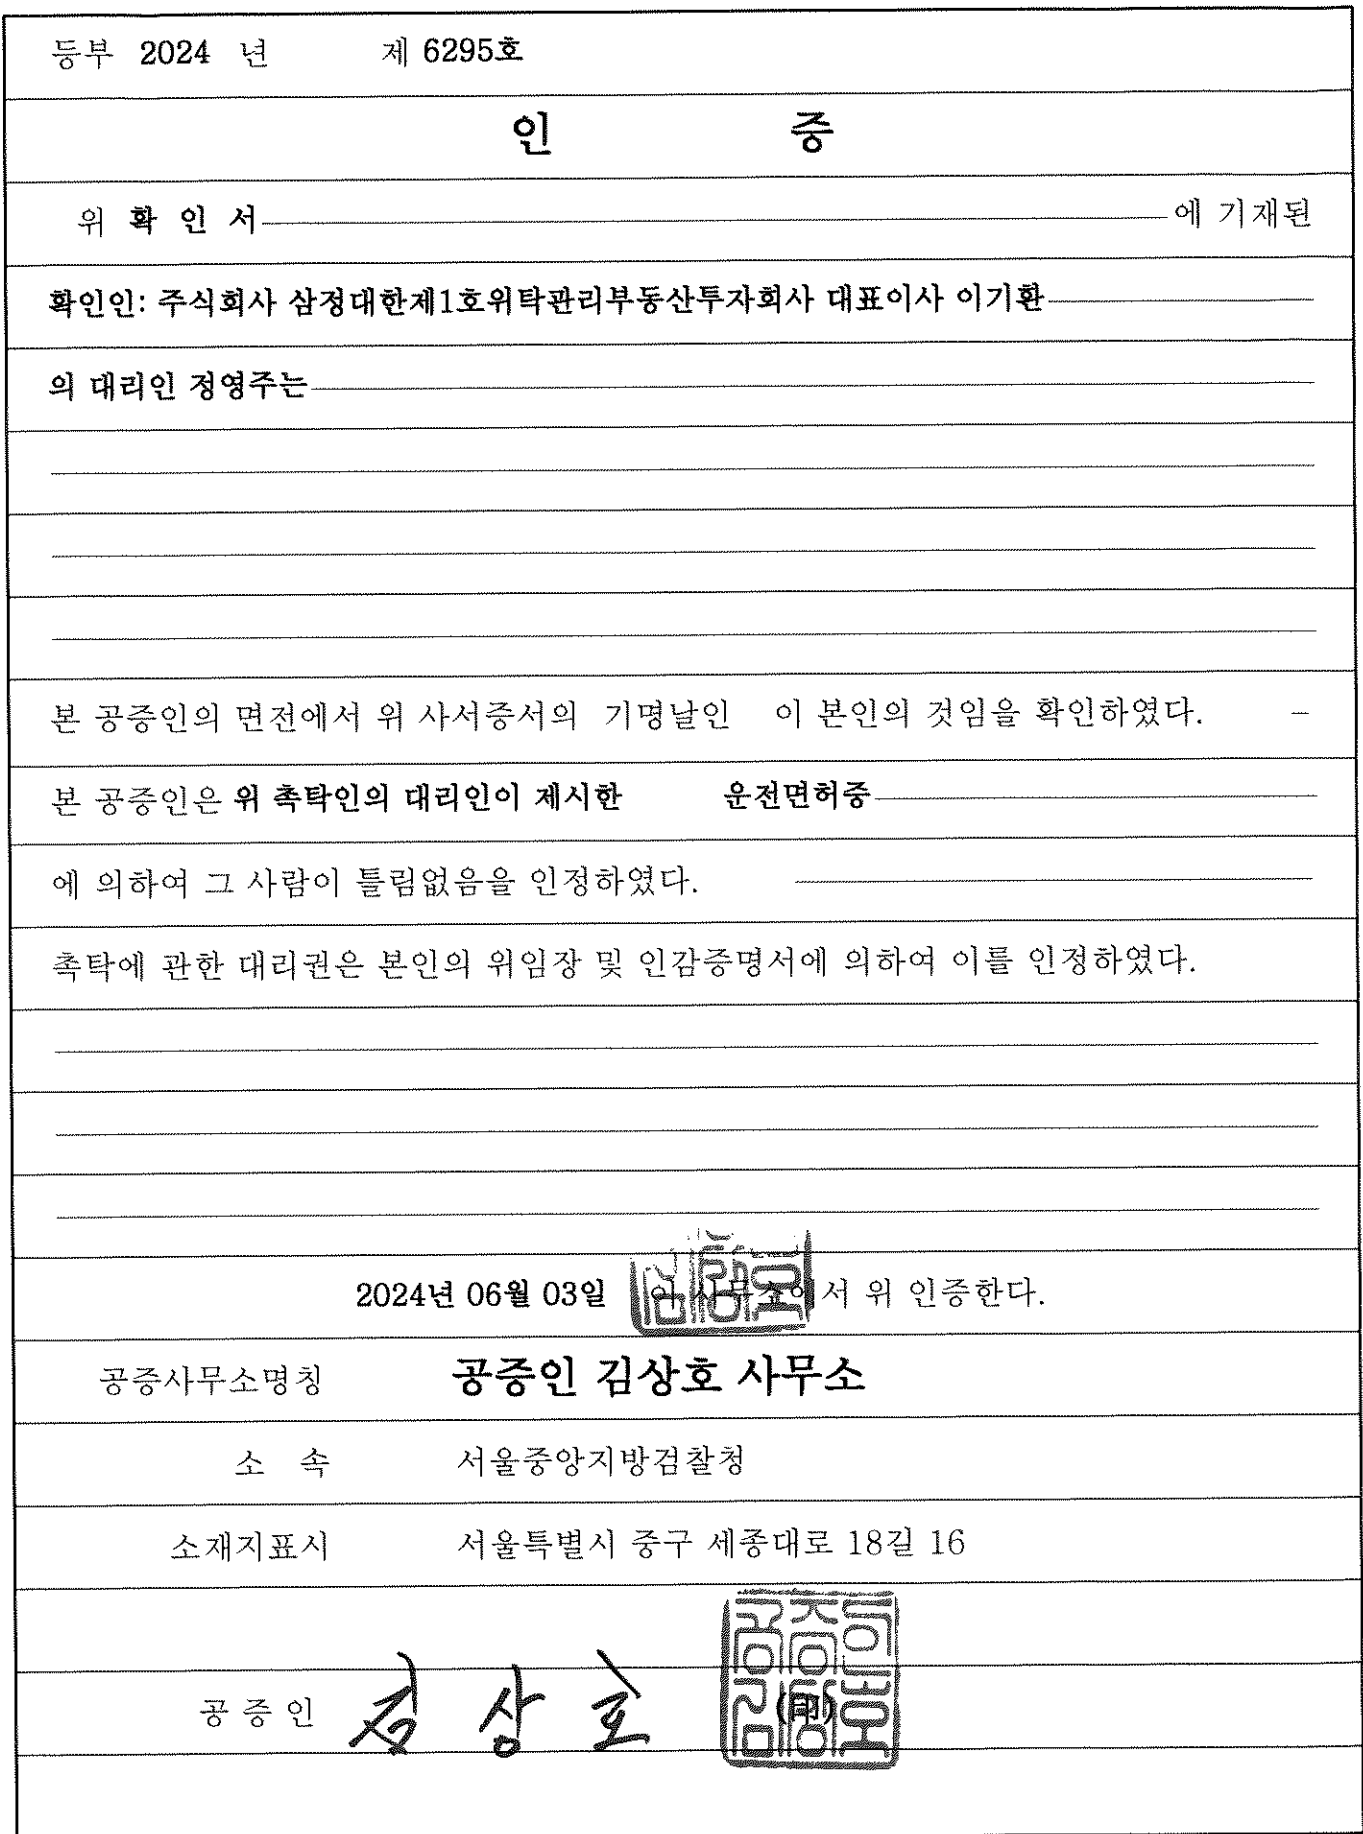 등부 2024 년 제 6295호
인 증
위 확 인 서 에 기재된
확인인: 주식회사 삼정대한제1호위탁관리부동산투자회사 대표이사 이기환
의 대리인 정영주는
본 공증인의 면전에서 위 사서증서의 기명날인 이 본인의 것임을 확인하였다. –
본 공증인은 위 촉탁인의 대리인이 제시한 운전면허증
에 의하여 그 사람이 틀림없음을 인정하였다.
촉탁에 관한 대리권은 본인의 위임장 및 인감증명서에 의하여 이를 인정하였다.
2024년 06월 03일 이 사무소에서 위 인증한다.
공증사무소명칭 공증인 김상호 사무소
소 속 서울중앙지방검찰청
소재지표시 서울특별시 중구 세종대로 18길 16
공증인 김상호 (印)
공증인
김상호